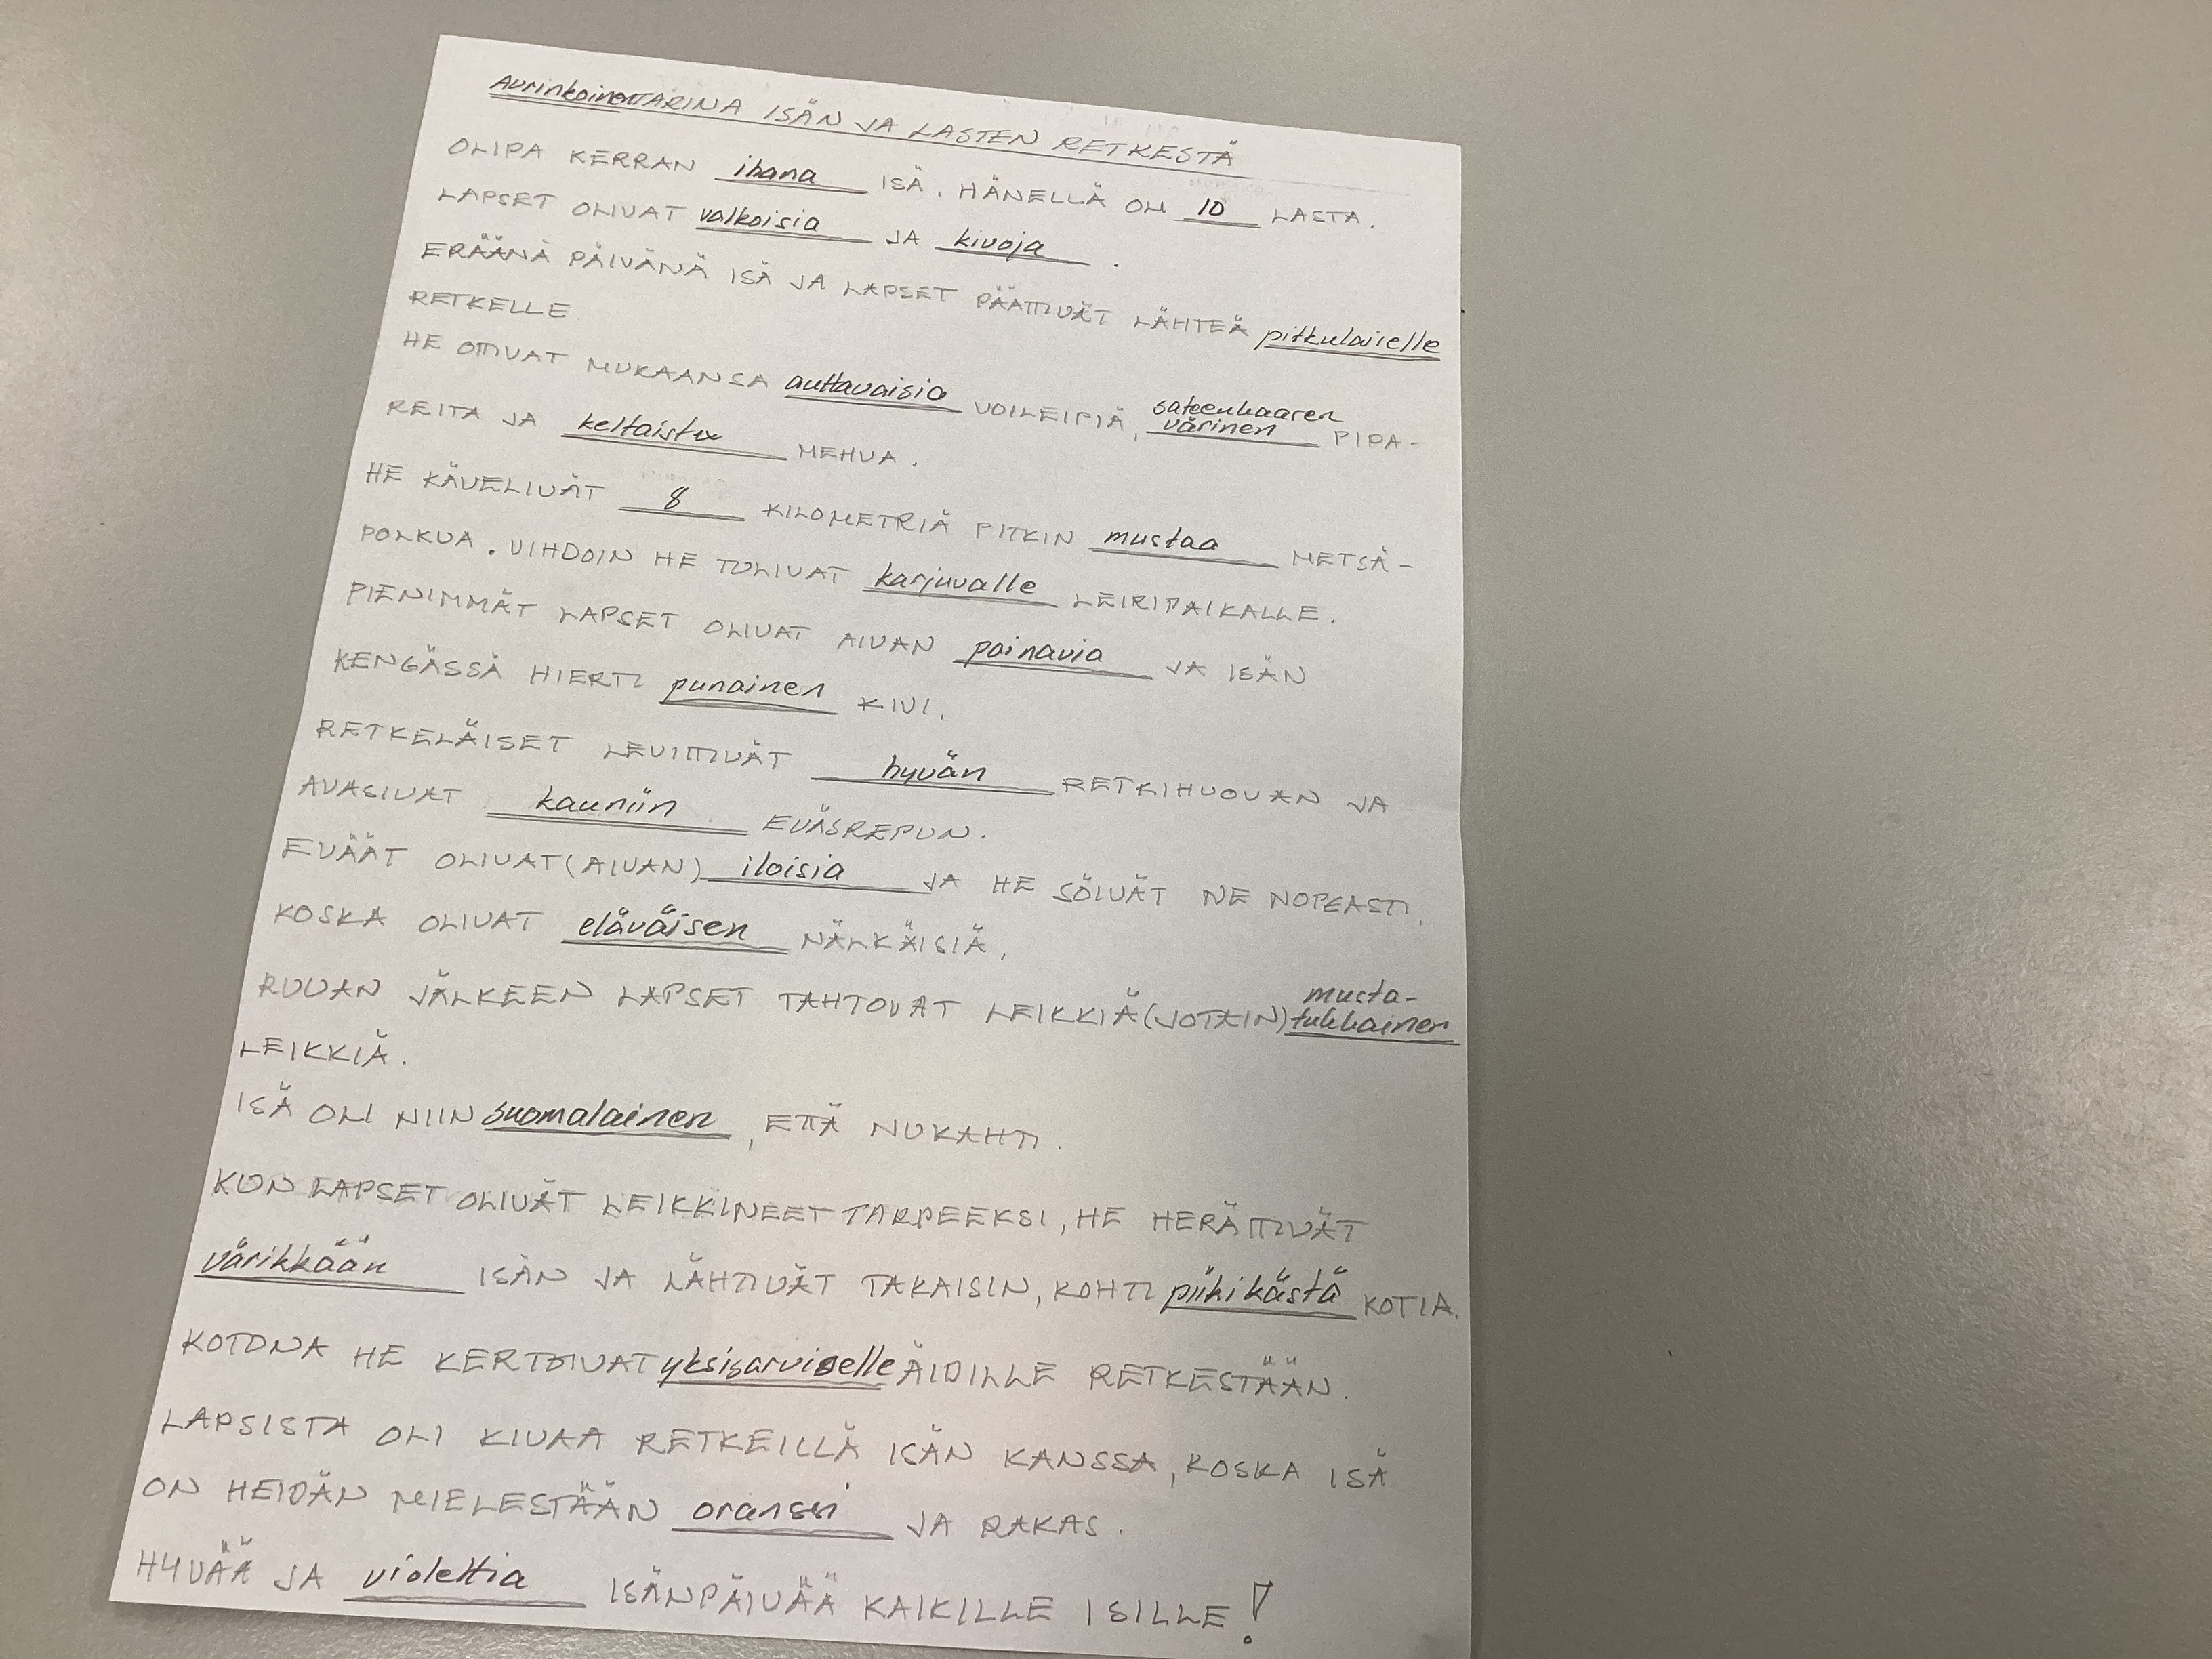 Aurinkoinen TARINA ISÄN JA LASTEN RETKESTÄ
OLIPA KERRAN ihana ISÄ. HÄNELLÄ OLI 10 LASTA.
LAPSET OLIVAT valkoisia JA kivoja.
ERÄÄNÄ PÄIVÄNÄ ISÄ JA LAPSET PÄÄTTIVÄT LÄHTEÄ pitkulaiselle
RETKELLE
HE OTTIVAT MUKAANSA auttavaisia VOILEIPIÄ, sateenkaaren värinen PIPA-
REITA JA keltaista MEHUA.
HE KÄVELIVÄT 8 KILOMETRIÄ PITKIN mustaa METSÄ-
POLKUA. VIHDOIN HE TULIVAT karjuvalle LEIRIPAIKALLE.
PIENIMMÄT LAPSET OLIVAT AIVAN painavia JA ISÄN
KENGÄSSÄ HIERTI punainen KIVI.
RETKELÄISET LEVITTIVÄT hyvän RETKIHUOVAN JA
AVASIVAT kauniin EVÄSREPUN.
EVÄÄT OLIVAT (AIVAN) iloisia JA HE SÖIVÄT NE NOPEASTI,
KOSKA OLIVAT eläväisen NÄLKÄISIÄ.
RUUAN JÄLKEEN LAPSET TAHTOVAT LEIKKIÄ (JOTAIN) musta-tukkainen
LEIKKIÄ.
ISÄ OLI NIIN suomalainen, ETTÄ NUKAHTI.
KUN LAPSET OLIVAT LEIKKINEET TARPEEKSI, HE HERÄTTIVÄT
värikkään ISÄN JA LÄHTIVÄT TAKAISIN, KOHTI piikikästä KOTIA.
KOTONA HE KERTOIVAT yksisarviselle ÄIDILLE RETKESTÄÄN.
LAPSISTA OLI KIVAA RETKEILLÄ ISÄN KANSSA, KOSKA ISÄ
ON HEIDÄN MIELESTÄÄN oranssi JA RAKAS.
HYVÄÄ JA violettia ISÄNPÄIVÄÄ KAIKILLE ISILLE!